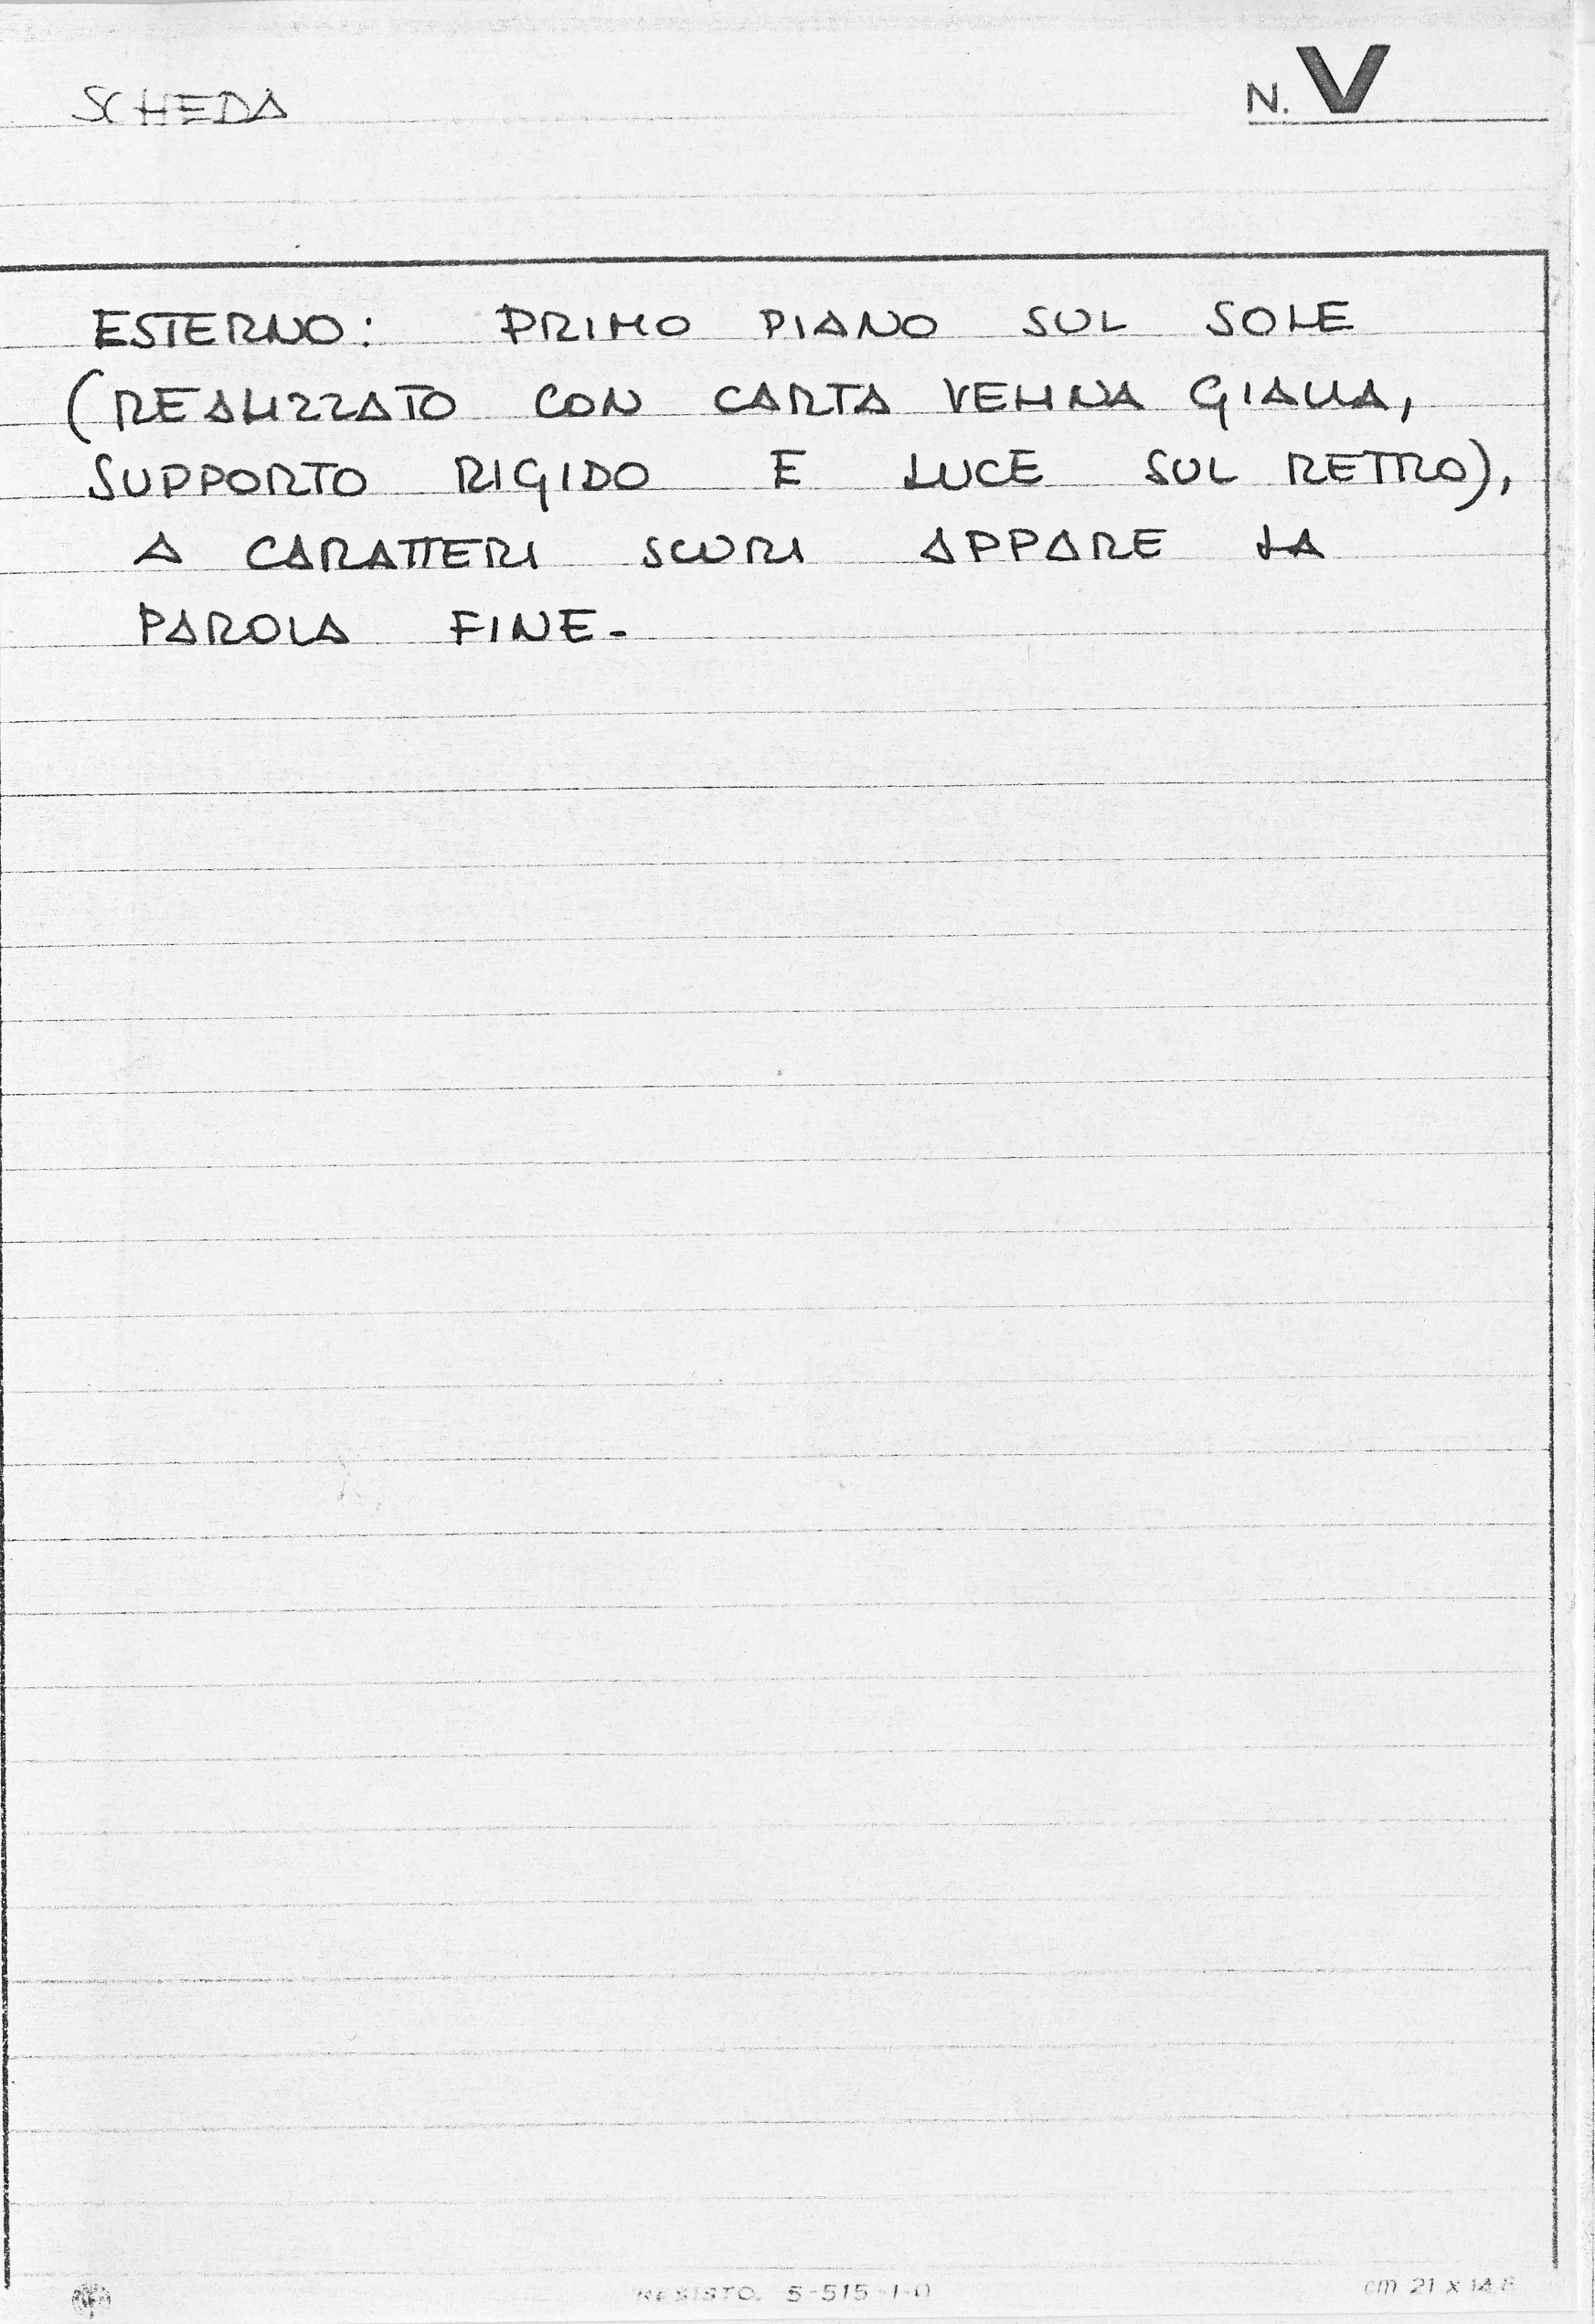 SCHEDA
N. V
ESTERNO: PRIMO PIANO SUL SOLE
(REALIZZATO CON CARTA VELINA GIALLA,
SUPPORTO RIGIDO E LUCE SUL RETRO),
A CARATTERI SCURI APPARE LA
PAROLA FINE-
RESISTO. 5-515-1-0
cm 21 x 14,8